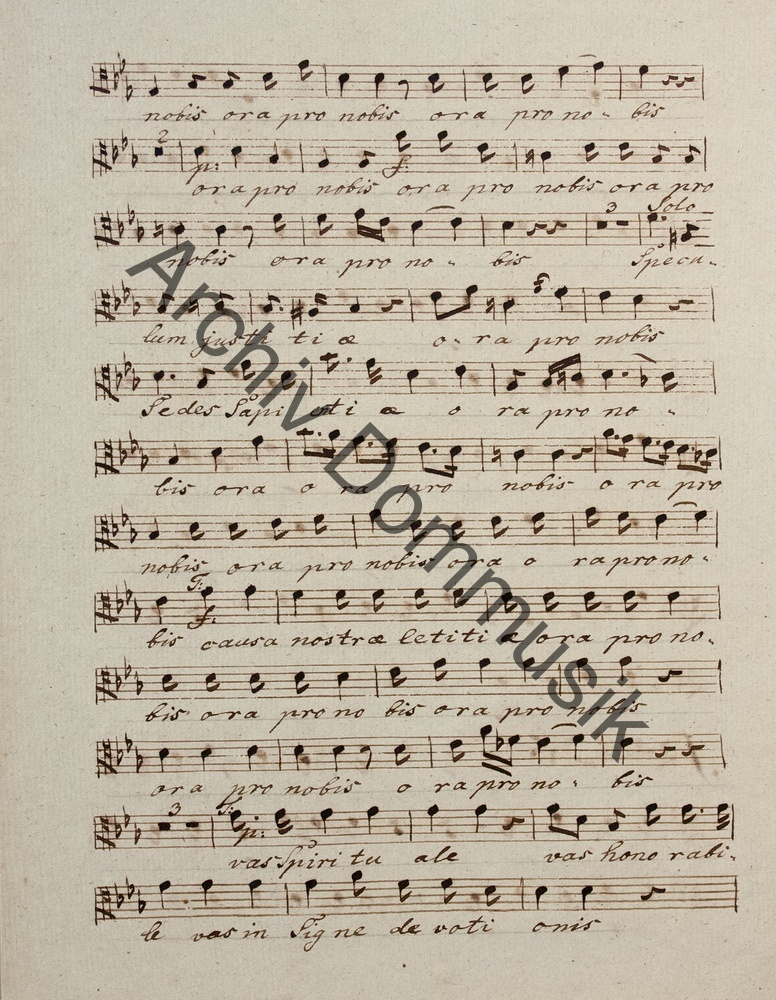 nobis ora pro nobis ora pro no - bis
2
p: f:
ora pro nobis ora pro nobis ora pro
3 Solo
nobis ora pro no - bis Specu-
lum justi ti æ o - ra pro nobis
Sedes Sapi enti æ o ra pro no -
bis ora o ra pro nobis o ra pro
nobis ora pro nobis ora o ra pro no -
T:
f:
bis causa nostræ letiti æ ora pro no -
bis ora pro no bis ora pro nobis
ora pro nobis o ra pro no - bis
3 T:
p:
vas Spiri tu ale vas hono rabi -
le vas in Signe de voti onis
Archiv Dommusik